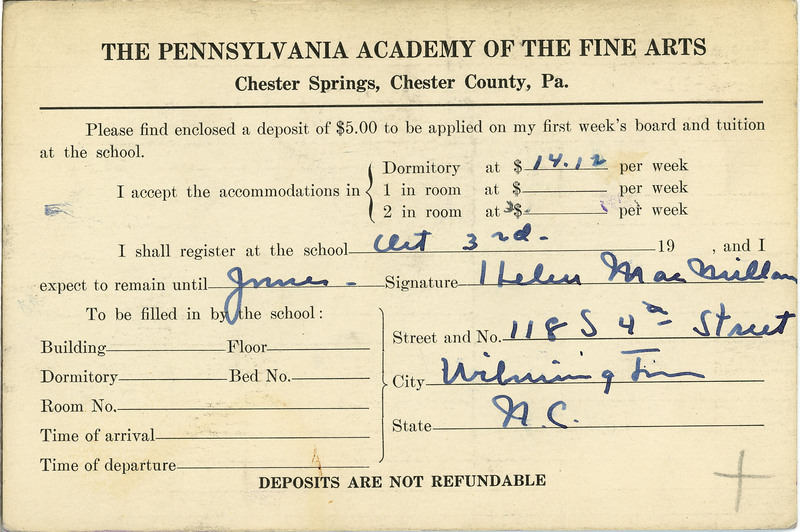 THE PENNSYLVANIA ACADEMY OF THE FINE ARTS
Chester Springs, Chester County, Pa.
Please find enclosed a deposit of $5.00 to be applied on my first week's board and tuition
at the school.
I accept the accommodations in
Dormitory at $ 14.12 per week
1 in room at $ per week
2 in room at $ per week
I shall register at the school Oct 3rd- 19 , and I
expect to remain until June - Signature Helen MacMillan
To be filled in by the school:
Street and No. 118 S 4th Street
Building Floor
Dormitory Bed No.
City Wilmington
Room No.
State N.C.
Time of arrival
Time of departure
DEPOSITS ARE NOT REFUNDABLE